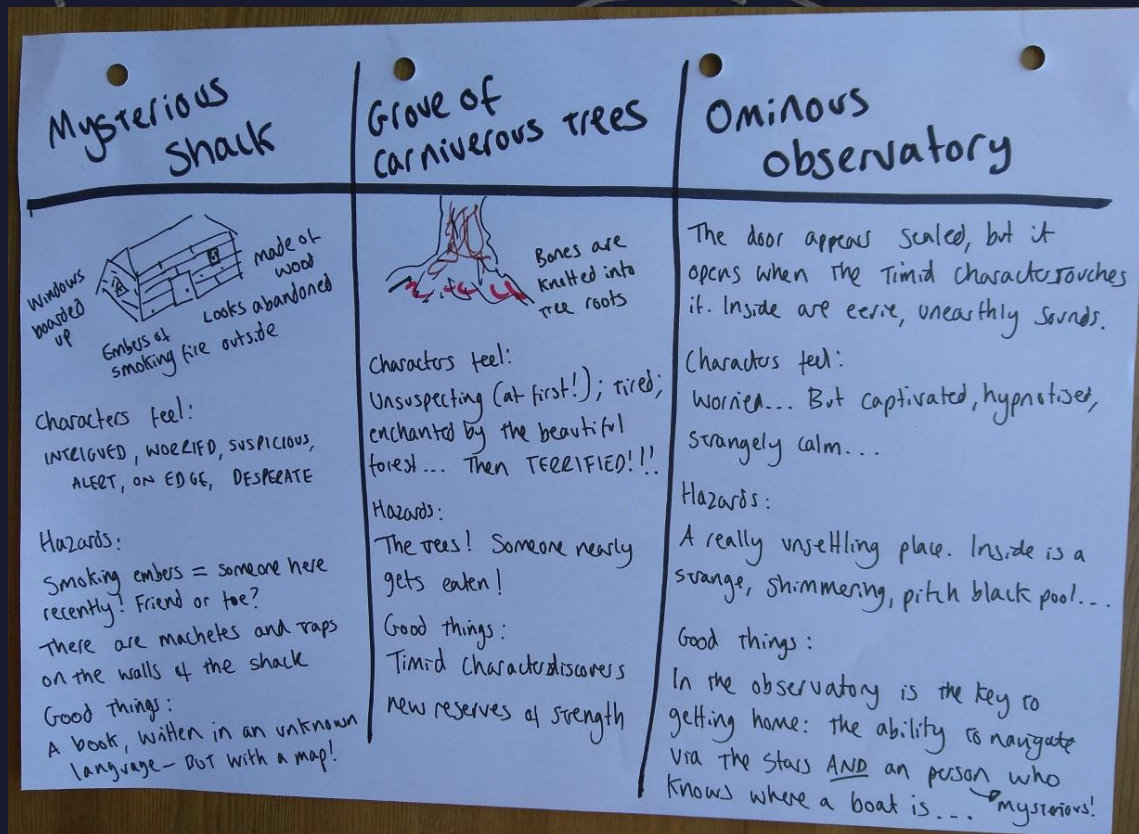 Mysterious
Shack
Windows
boarded
up
made of
wood
Looks abandoned
Embers of
smoking fire outside
Characters feel:
INTRIGUED, WORRIED, SUSPICIOUS,
ALERT, ON EDGE, DESPERATE
Hazards:
Smoking embers = someone here
recently! Friend or foe?
There are machetes and traps
on the walls of the shack
Good Things:
A book, written in an unknown
language - BUT with a map!
Grove of
carniverous trees
Bones are
knitted into
tree roots
Characters feel:
Unsuspecting (at first!); tired;
enchanted by the beautiful
forest... Then TERRIFIED!!!
Hazards:
The trees! Someone nearly
gets eaten!
Good things:
Timid character discovers
new reserves of strength
Ominous
observatory
The door appears sealed, but it
opens when the timid character touches
it. Inside are eerie, unearthly sounds.
Characters feel:
Worried... But captivated, hypnotised,
strangely calm...
Hazards:
A really unsettling place. Inside is a
strange, shimmering, pitch black pool...
Good things:
In the observatory is the key to
getting home: the ability to navigate
via the stars AND an person who
knows where a boat is... mysterious!